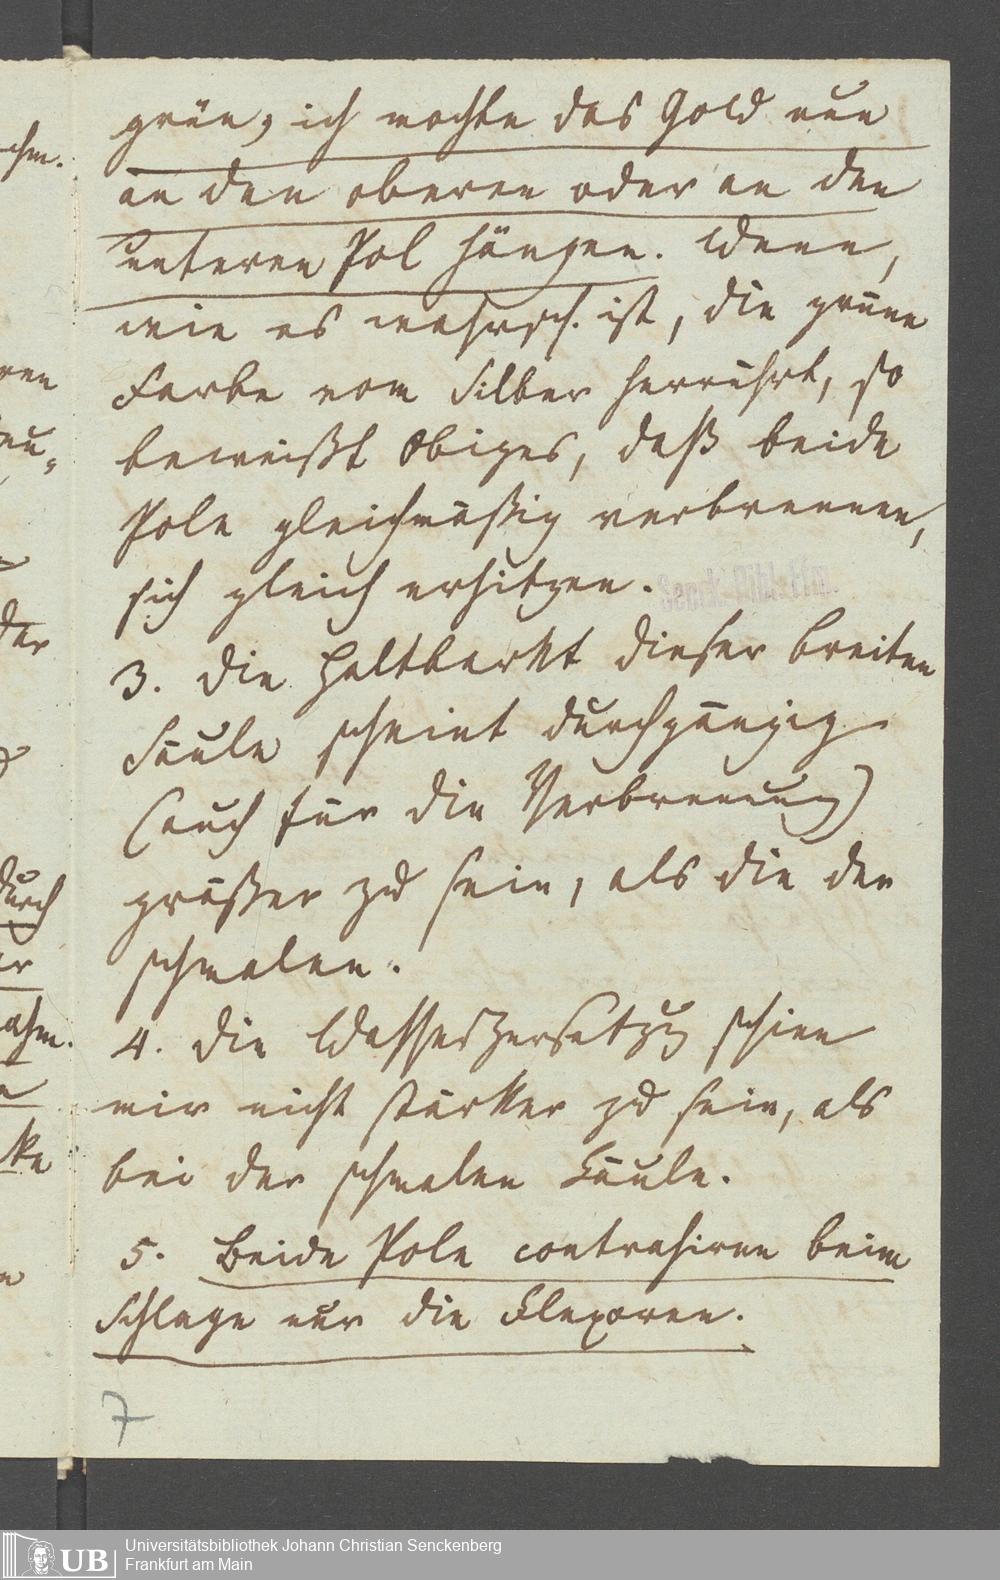 grün, ich mochte das Gold nun
an den oberen oder an den
unteren Pol hängen. Wenn,
wie es wahrsch. ist, die grüne
Farbe vom Silber herrührt, so
beweißt Obiges, daß beide
Pole gleichmäßig verbrennen,
sich gleich erhitzen.
Senck. Bibl. Ffm.
3. Die Haltbarkt dieser breiten
Säule scheint durchgängig
(auch für die Verbrennung)
größer zu sein, als die der
schmalen.
4. Die Wasserzersetzug schien
mir nicht stärker zu sein, als
bei der schmalen Säule.
5. Beide Pole contrahiren beim
Schlage nur die Flexoren.
7
chm.
ren
der
durch
er
ahm.
ke
UB
Universitätsbibliothek Johann Christian Senckenberg
Frankfurt am Main